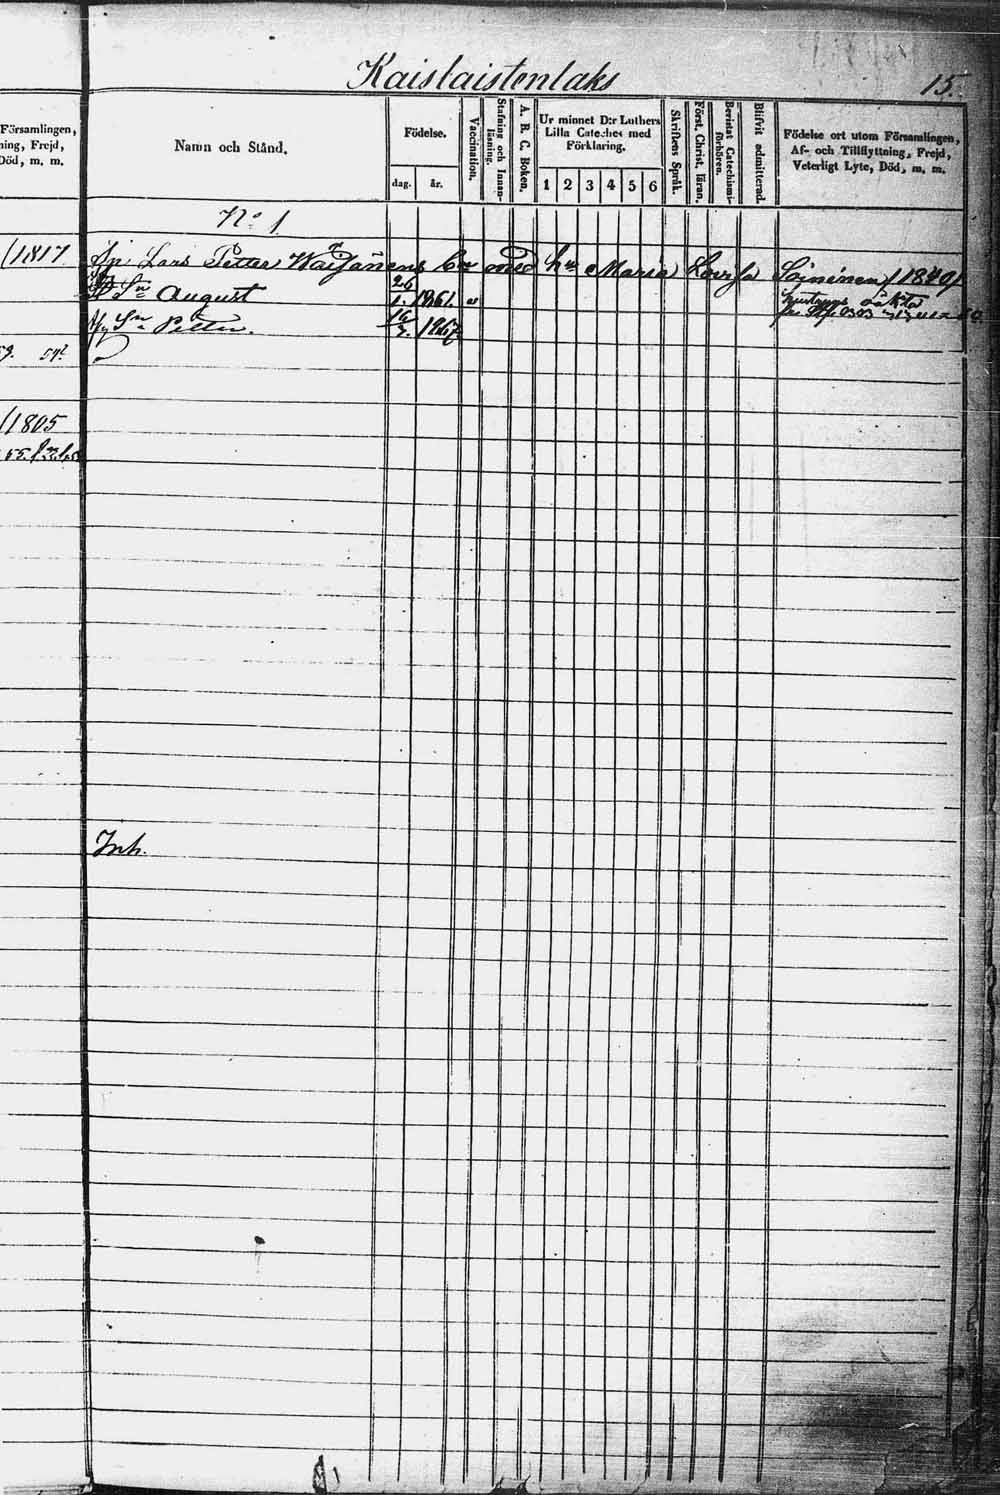 Kaislaistenlaks 15.
Församlingen,
ning, Frejd,
Död, m. m.
Namn och Stånd.
Födelse.
dag. år.
Vaccination.
Stafning och Innan-läsning.
A. B. C. Boken.
Ur minnet D:r Luthers
Lilla Cateches med
Förklaring.
1 2 3 4 5 6
Skriftens Språk.
Först. Christ. läran.
Bevistat Catechismi-förhören.
Blifvit admitterad.
Födelse ort utom Församlingen,
Af- och Tillflyttning, Frejd,
Veterligt Lyte, Död, m. m.
No 1
/1817 Lars Petter med Maria Lovisa Soininen /1840/
Sn August 26/1. 1861.
Sn Petter. 16/7. 1867.
/1805
Inh.